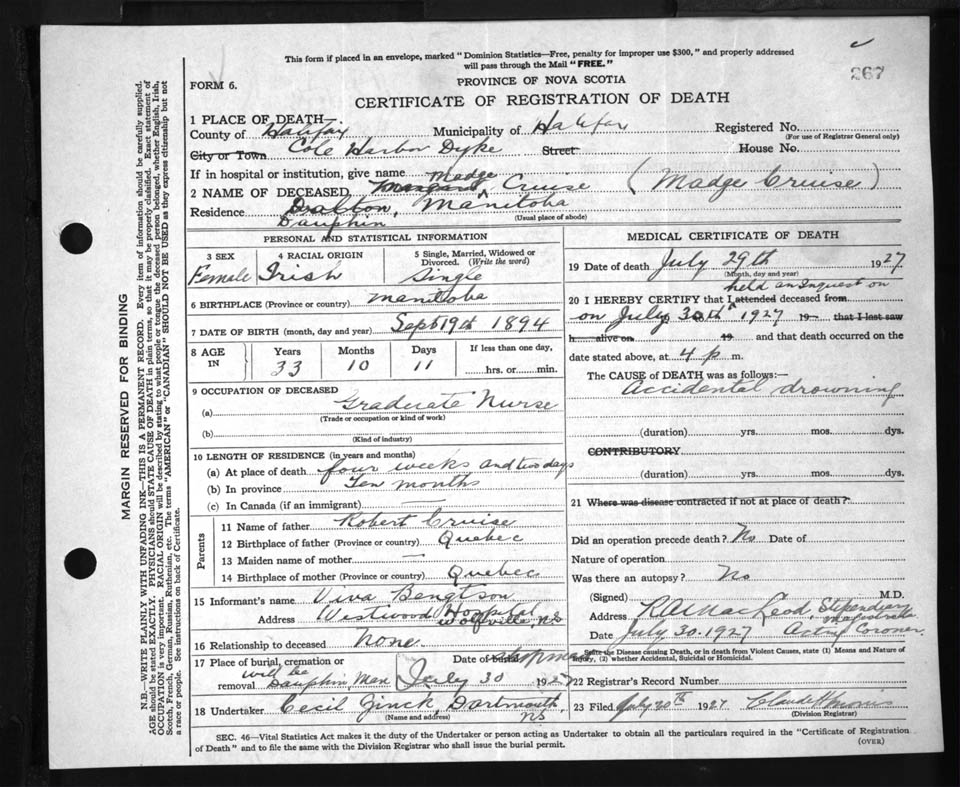 This form if placed in an envelope, marked "Dominion Statistics—Free, penalty for improper use $300," and properly addressed
will pass through the Mail "FREE."
267
FORM 6.
PROVINCE OF NOVA SCOTIA
CERTIFICATE OF REGISTRATION OF DEATH
1 PLACE OF DEATH
County of Halifax Municipality of Halifax Registered No.
(For use of Registrar General only)
City or Town Cole Harbor Dyke Street House No.
If in hospital or institution, give name
Madge
2 NAME OF DECEASED Cruise (Madge Cruise)
Residence Manitoba
Dauphin (Usual place of abode)
PERSONAL AND STATISTICAL INFORMATION
3 SEX 4 RACIAL ORIGIN 5 Single, Married, Widowed or
Divorced. (Write the word)
Female Irish Single
6 BIRTHPLACE (Province or country) Manitoba
7 DATE OF BIRTH (month, day and year) Sept 19th 1894
8 AGE IN Years Months Days If less than one day,
33 10 11 hrs. or min.
9 OCCUPATION OF DECEASED
(a) Graduate Nurse
(Trade or occupation or kind of work)
(b)
(Kind of industry)
10 LENGTH OF RESIDENCE (in years and months)
(a) At place of death four weeks and two days
(b) In province Ten months
(c) In Canada (if an immigrant) —
Parents
11 Name of father Robert Cruise
12 Birthplace of father (Province or country) Quebec
13 Maiden name of mother —
14 Birthplace of mother (Province or country) Quebec
15 Informant's name Viva Bengtson
Address Westwood Hospital
Wolfville, N.S
16 Relationship to deceased None.
17 Place of burial, cremation or Date of burial
removal will be Dauphin Man July 30 1927
18 Undertaker Cecil Zinck, Dartmouth,
(Name and address) NS
MEDICAL CERTIFICATE OF DEATH
19 Date of death July 29th 1927.
(Month, day and year)
held an Inquest on
20 I HEREBY CERTIFY that I attended deceased from
on July 30th 1927 19 that I last saw
h alive on 19 and that death occurred on the
date stated above, at 4 p m.
The CAUSE of DEATH was as follows:—
Accidental drowning
(duration) yrs. mos. dys.
CONTRIBUTORY
(duration) yrs. mos. dys.
21 Where was disease contracted if not at place of death?
Did an operation precede death? No Date of
Nature of operation
Was there an autopsy? No
(Signed) M.D.
R A MacLeod Stipendiary
Magistrate
Address Coroner.
Date July 30. 1927
State the Disease causing Death, or in death from Violent Causes, state (1) Means and Nature of
Injury, (2) whether Accidental, Suicidal or Homicidal.
22 Registrar's Record Number
23 Filed July 30th 1927
(Division Registrar)
SEC. 46—Vital Statistics Act makes it the duty of the Undertaker or person acting as Undertaker to obtain all the particulars required in the "Certificate of Registration
of Death" and to file the same with the Division Registrar who shall issue the burial permit. (OVER)
MARGIN RESERVED FOR BINDING
N.B.—WRITE PLAINLY WITH UNFADING INK—THIS IS A PERMANENT RECORD. Every item of information should be carefully supplied.
AGE should be stated EXACTLY. PHYSICIANS should STATE CAUSE OF DEATH in plain terms, so that it may be properly classified. Exact statement of
OCCUPATION is very important. RACIAL ORIGIN will be described by stating to what people or tongue the deceased person belonged, whether English, Irish,
Scotch, French, German, Russian, Ruthenian, etc. The terms "AMERICAN" or "CANADIAN" SHOULD NOT BE USED as they express citizenship but not
a race or people. See instructions on back of Certificate.